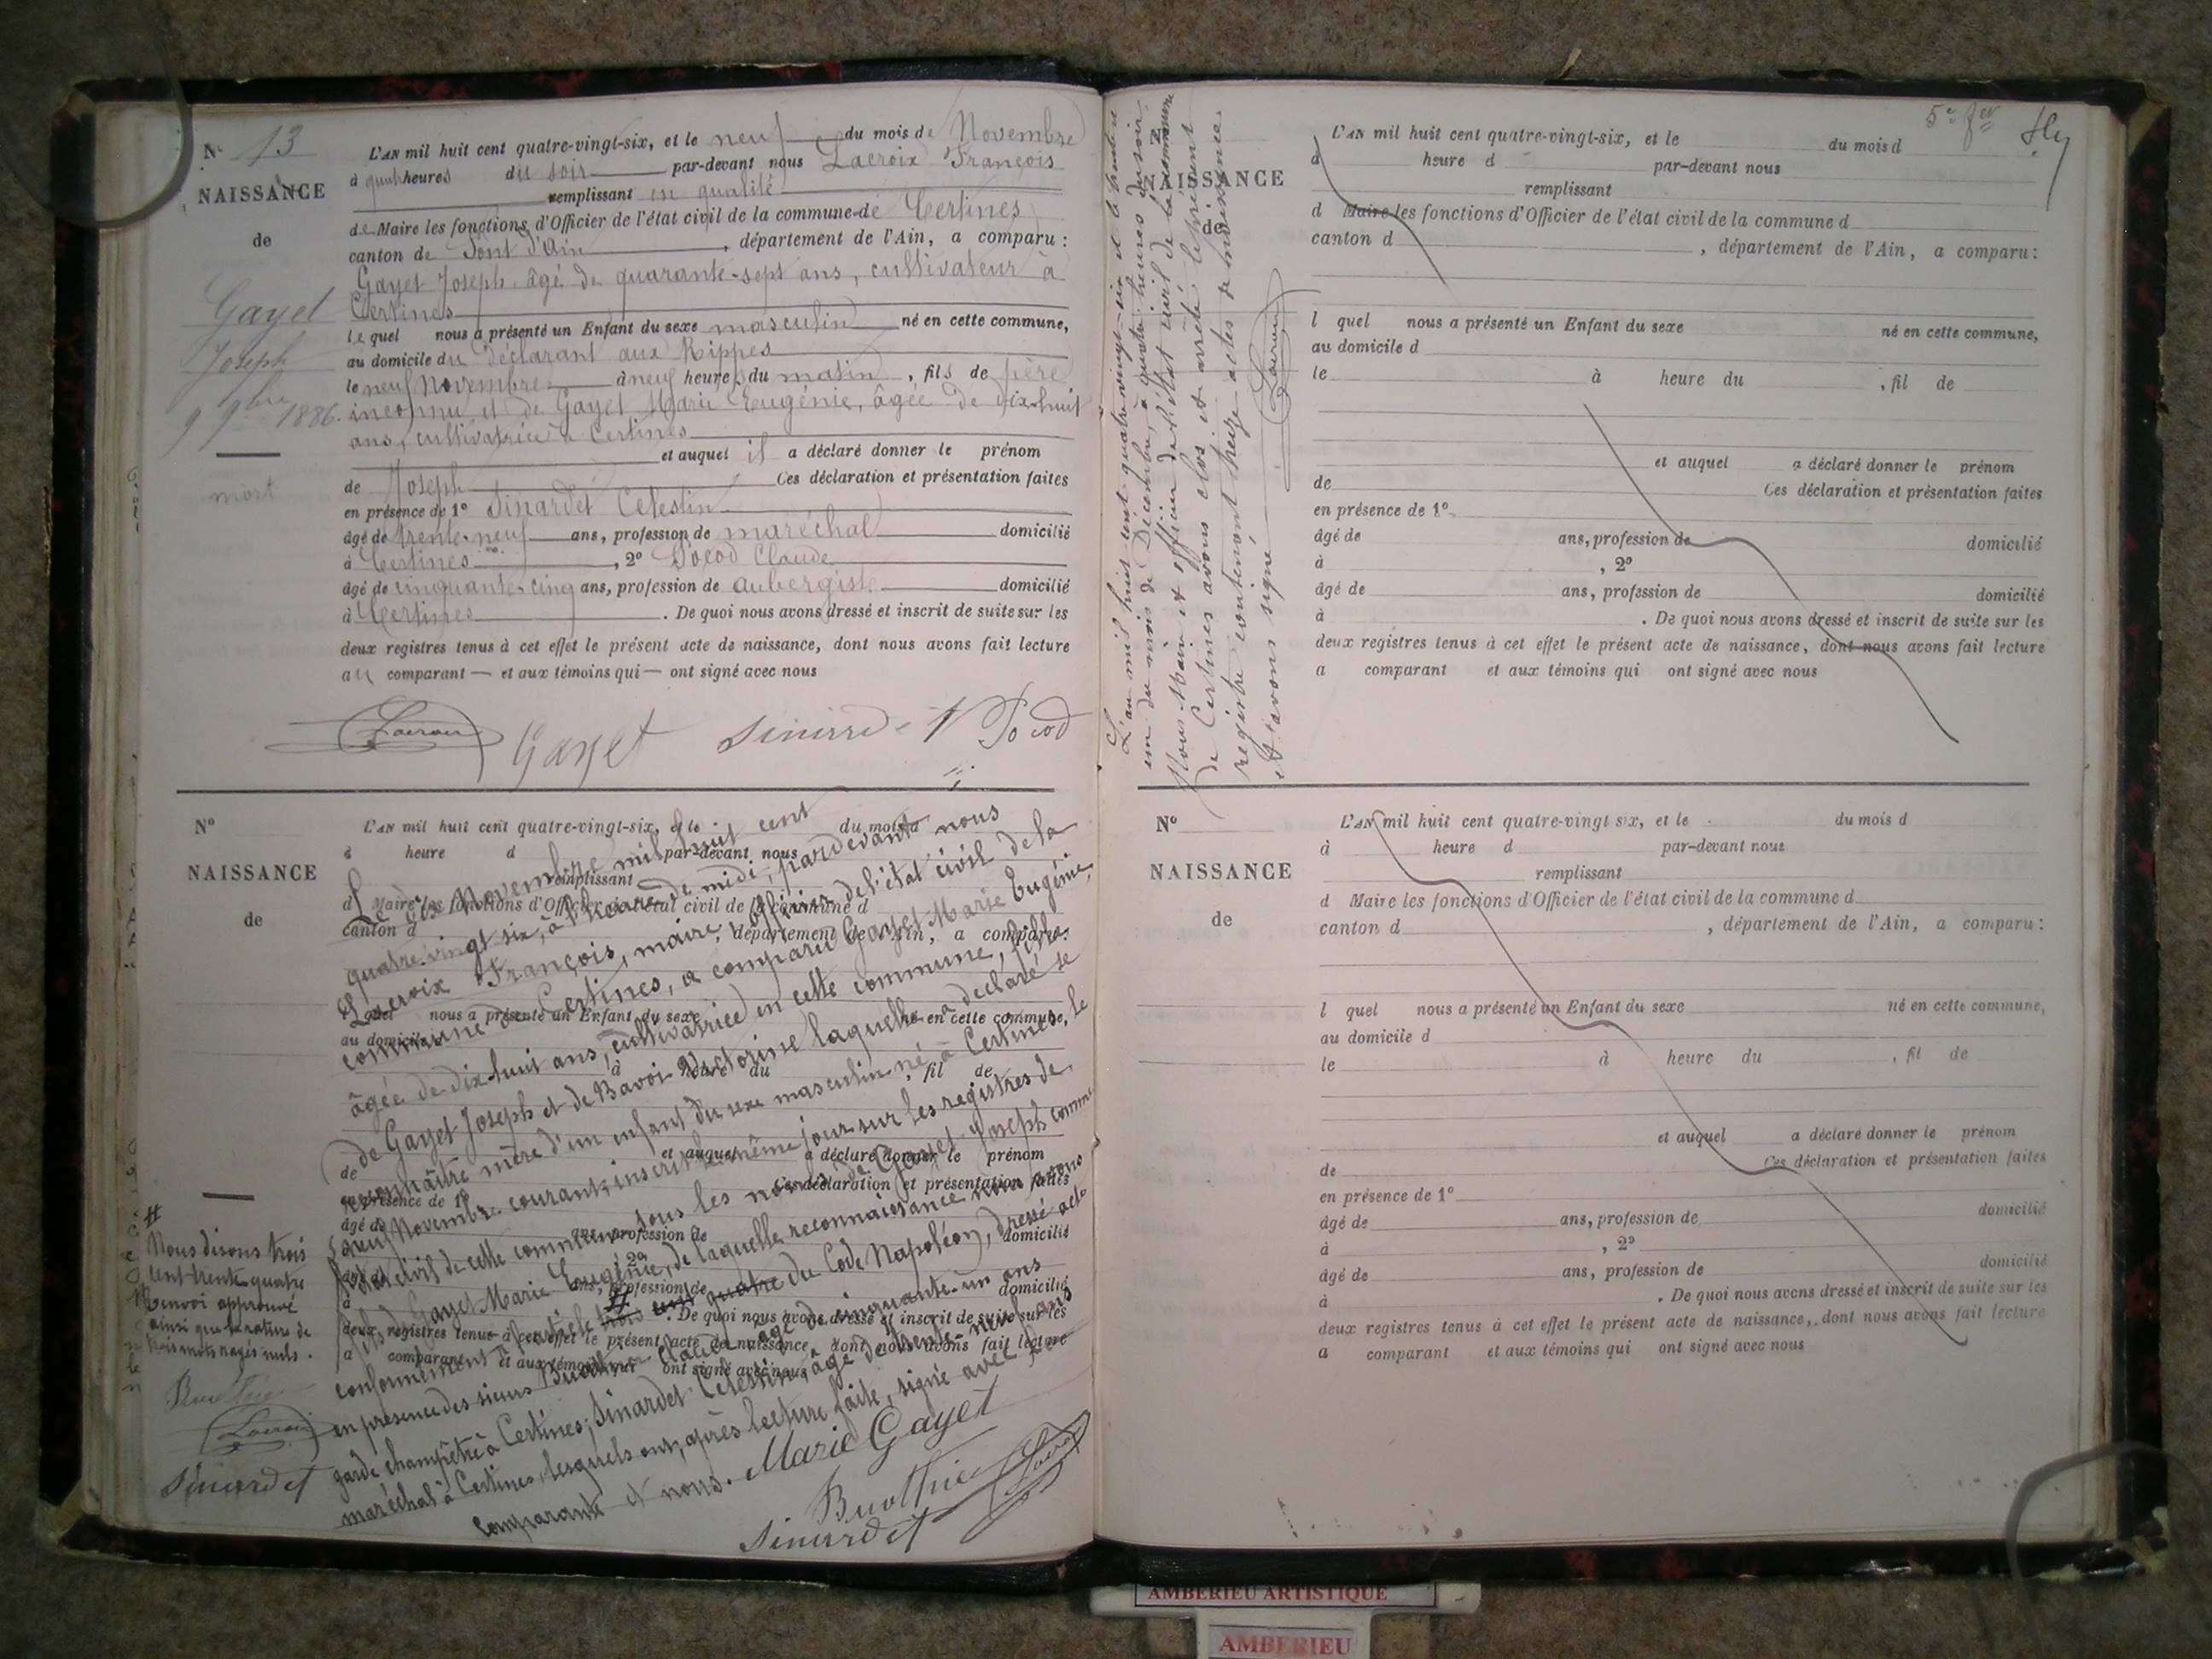 N° 13
NAISSANCE
de
Gayet
Joseph
9 9bre 1886.
mort
L'AN mil huit cent quatre-vingt-six, et le neuf du mois de Novembre
à quatre heures du soir par-devant nous Lacroix François
remplissant en qualité
de Maire les fonctions d'Officier de l'état civil de la commune de Certines
canton de Pont d'Ain, département de l'Ain, a comparu :
Gayet Joseph, âgé de quarante-sept ans, cultivateur à
Certines
lequel nous a présenté un Enfant du sexe masculin né en cette commune,
au domicile du déclarant aux Rippes
le neuf Novembre à neuf heures du matin, fils de père
inconnu et de Gayet Marie Eugénie, âgée de dix-huit
ans, cultivatrice à Certines
et auquel il a déclaré donner le prénom
de Joseph Ces déclaration et présentation faites
en présence de 1° Sinardet Célestin
âgé de trente-neuf ans, profession de maréchal domicilié
à Certines, 2° Pocod Claude
âgé de cinquante-cinq ans, profession de aubergiste domicilié
à Certines. De quoi nous avons dressé et inscrit de suite sur les
deux registres tenus à cet effet le présent acte de naissance, dont nous avons fait lecture
au comparant — et aux témoins qui — ont signé avec nous
Lacroix Gayet Sinardet Pocod
N°
NAISSANCE
de
L'AN mil huit cent quatre-vingt-six, et le du mois d
à heure d par-devant nous
remplissant
d Maire les fonctions d'Officier de l'état civil de la commune d
canton d , département de l'Ain, a comparu:
l quel nous a présenté un Enfant du sexe né en cette commune,
au domicile d
à heure du , fil de
et auquel a déclaré donner le prénom
de Ces déclaration et présentation faites
en présence de 1°
âgé de ans, profession de domicilié
2°
ans, profession de domicilié
. De quoi nous avons dressé et inscrit de suite sur les
deux registres tenus à cet effet le présent acte de naissance, dont nous avons fait lecture
a comparant et aux témoins qui ont signé avec nous
Le dix Novembre mil huit cent
quatre vingt six, à heure de midi, pardevant nous
Lacroix François, maire, officier de l'état civil de la
commune de Certines, a comparu Gayet Marie Eugénie,
âgée de dix-huit ans, cultivatrice en cette commune, fille
de Gayet Joseph et de Bavoi Victorine laquelle a déclaré se
reconnaître mère d'un enfant du sexe masculin né à Certines, le
neuf Novembre courant, inscrit le même jour sur les registres de
l'état civil de cette commune sous les noms de Gayet Joseph comme
fils de Gayet Marie Eugénie, de laquelle reconnaissance nous avons
conformément à l'article trois cent quatre # du Code Napoléon, dressé acte
en présence des sieurs Buathier Claude âgé de cinquante-un ans
garde champêtre à Certines; Sinardet Célestin, âgé de trente-neuf ans
maréchal à Certines, lesquels ont, après lecture faite, signé avec la
comparante et nous. Marie Gayet
Buathier Lacroix
Sinardet
#
Nous disons trois
cent trente quatre
Renvoi approuvé
ainsi que la rature de
trois mots rayés nuls.
Buathier
Lacroix
Sinardet
L'an mil huit cent quatre vingt-six et le trente
un du mois de Décembre, à quatre heures du soir
Nous Maire et officier de l'état civil de la commune
de Certines avons clos et arrêté le présent
registre contenant treize actes de naissance
et avons signé
Lacroix
5e fet
N
NAISSANCE
de
L'AN mil huit cent quatre-vingt-six, et le du mois d
à heure d par-devant nous
remplissant
d Maire les fonctions d'Officier de l'état civil de la commune d
canton d , département de l'Ain, a comparu:
l quel nous a présenté un Enfant du sexe né en cette commune,
au domicile d
le à heure du , fil de
et auquel a déclaré donner le prénom
de Ces déclaration et présentation faites
en présence de 1°
âgé de ans, profession de domicilié
à , 2°
âgé de ans, profession de domicilié
à . De quoi nous avons dressé et inscrit de suite sur les
deux registres tenus à cet effet le présent acte de naissance, dont nous avons fait lecture
a comparant et aux témoins qui ont signé avec nous
N°
NAISSANCE
de
L'AN mil huit cent quatre-vingt six, et le du mois d
à heure d par-devant nous
remplissant
d Maire les fonctions d'Officier de l'état civil de la commune d
canton d , département de l'Ain, a comparu:
l quel nous a présenté un Enfant du sexe né en cette commune,
au domicile d
le à heure du , fil de
et auquel a déclaré donner le prénom
de Ces déclaration et présentation faites
en présence de 1°
âgé de ans, profession de domicilié
à , 2°
âgé de ans, profession de domicilié
à . De quoi nous avons dressé et inscrit de suite sur les
deux registres tenus à cet effet le présent acte de naissance, dont nous avons fait lecture
a comparant et aux témoins qui ont signé avec nous
AMBERIEU ARTISTIQUE
AMBERIEU